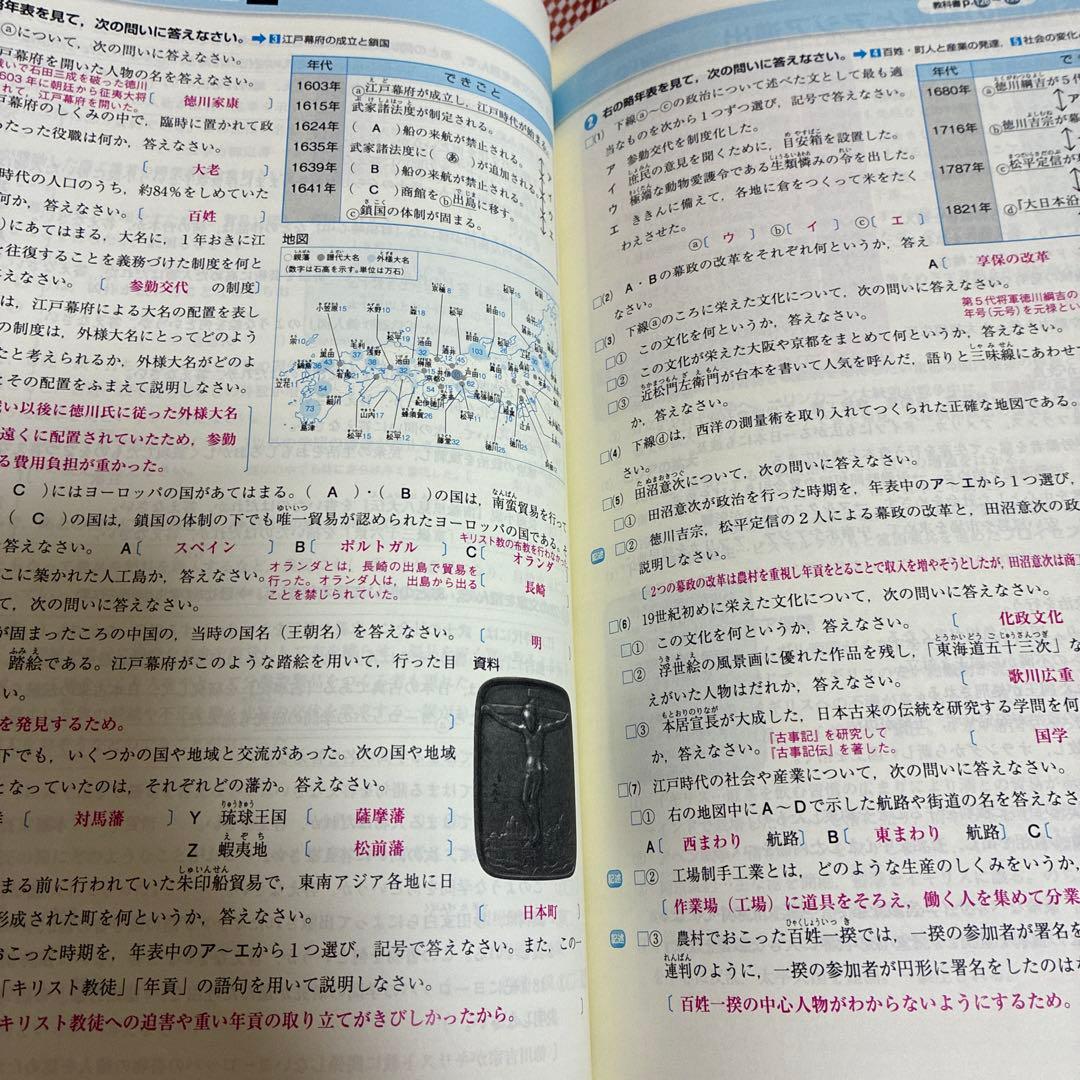 略年表を見て，次の問いに答えなさい。 ➡3江戸幕府の成立と鎖国
ⓐについて，次の問いに答えなさい。
戸幕府を開いた人物の名を答えなさい。
戦いで石田三成を破った徳川
603年に朝廷から征夷大将
れて，江戸幕府を開いた。
〔 徳川家康 〕
戸幕府のしくみの中で，臨時に置かれて政
あたった役職は何か，答えなさい。
〔 大老 〕
時代の人口のうち，約84％をしめていた
何か，答えなさい。〔 百姓 〕
)にあてはまる，大名に，1年おきに江
を往復することを義務づけた制度を何と
答えなさい。〔 参勤交代 の制度〕
は，江戸幕府による大名の配置を表し
の制度は，外様大名にとってどのよう
たと考えられるか，外様大名がどのよ
とその配置をふまえて説明しなさい。
戦い以後に徳川氏に従った外様大名
遠くに配置されていたため，参勤
る費用負担が重かった。
年代 できごと
1603年 ⓐ江戸幕府が成立し，江戸時代が始まる
1615年 武家諸法度が制定される。
1624年 （ A ）船の来航が禁止される。
1635年 武家諸法度に（ あ ）が追加される
1639年 （ B ）船の来航が禁止される。
1641年 （ C ）商館をⓑ出島に移す。
ⓒ鎖国の体制が固まる。
地図
親藩 譜代大名 外様大名
(数字は石高を示す。単位は万石)
C ）にはヨーロッパの国があてはまる。（ A ）・（ B ）の国は，南蛮貿易を行って
（ C ）の国は，鎖国の体制の下でも唯一貿易が認められたヨーロッパの国である。そ
キリスト教の布教を行わなかった
答えなさい。 A〔 スペイン 〕 B〔 ポルトガル 〕 C〔 オランダ
こに築かれた人工島か，答えなさい。
オランダとは，長崎の出島で貿易を
行った。オランダ人は，出島から出る
ことを禁じられていた。
〔 長崎 〕
て，次の問いに答えなさい。
が固まったころの中国の，当時の国名（王朝名）を答えなさい。 〔 明 〕
踏絵である。江戸幕府がこのような踏絵を用いて，行った目 資料
い。
を発見するため。 〕
下でも，いくつかの国や地域と交流があった。次の国や地域
となっていたのは，それぞれどの藩か。答えなさい。
〔 対馬藩 〕 Y 琉球王国 〔 薩摩藩 〕
Z 蝦夷地 〔 松前藩 〕
まる前に行われていた朱印船貿易で，東南アジア各地に日
形成された町を何というか，答えなさい。 〔 日本町 〕
おこった時期を，年表中のア～エから1つ選び，記号で答えなさい。また，この一
「キリスト教徒」「年貢」の語句を用いて説明しなさい。
キリスト教徒への迫害や重い年貢の取り立てがきびしかったから。 〕
教科書p.
2 右の略年表を見て，次の問いに答えなさい。 ➡4百姓・町人と産業の発達，5社会の変化
□(1) 下線ⓐ～ⓒの政治について述べた文として最も適
当なものを次から1つずつ選び，記号で答えなさい。
ア 参勤交代を制度化した。
イ 庶民の意見を聞くために，目安箱を設置した。
ウ 極端な動物愛護令である生類憐みの令を出した。
エ ききんに備えて，各地に倉をつくって米をたく
わえさせた。
ⓐ〔 ウ 〕 ⓑ〔 イ 〕 ⓒ〔 エ 〕
年代
1680年 ⓐ徳川綱吉が5代
1716年 ⓑ徳川吉宗が
1787年 ⓒ松平定信が
1821年 ⓓ「大日本沿
□(2) A・Bの幕政の改革をそれぞれ何というか，答え
なさい。
A〔 享保の改革
□(3) 下線ⓐのころに栄えた文化について，次の問いに答えなさい。
第5代将軍徳川綱吉の
年号(元号)を元禄とい
□① この文化を何というか，答えなさい。
□② この文化が栄えた大阪や京都をまとめて何というか，答えなさい。
□③ 近松門左衛門が台本を書いて人気を呼んだ，語りと三味線にあわせて
か，答えなさい。
□(4) 下線ⓓは，西洋の測量術を取り入れてつくられた正確な地図である。
さい。
□(5) 田沼意次について，次の問いに答えなさい。
□① 田沼意次が政治を行った時期を，年表中のア～エから1つ選び，
記述 □② 徳川吉宗，松平定信の2人による幕政の改革と，田沼意次の政
説明しなさい。
〔 2つの幕政の改革は農村を重視し年貢をとることで収入を増やそうとしたが，田沼意次は商工
□(6) 19世紀初めに栄えた文化について，次の問いに答えなさい。
□① この文化を何というか，答えなさい。 〔 化政文化
□② 浮世絵の風景画に優れた作品を残し，「東海道五十三次」な
えがいた人物はだれか，答えなさい。 〔 歌川広重
□③ 本居宣長が大成した，日本古来の伝統を研究する学問を何
か，答えなさい。
『古事記』を研究して
『古事記伝』を著した。
〔 国学
□(7) 江戸時代の社会や産業について，次の問いに答えなさい。
□① 右の地図中にA～Dで示した航路や街道の名を答えなさ
A〔 西まわり 航路〕 B〔 東まわり 航路〕 C〔
記述 □② 工場制手工業とは，どのような生産のしくみをいうか，
〔 作業場（工場）に道具をそろえ，働く人を集めて分業
記述 □③ 農村でおこった百姓一揆では，一揆の参加者が署名を
連判のように，一揆の参加者が円形に署名をしたのはな
〔 百姓一揆の中心人物がわからないようにするため。